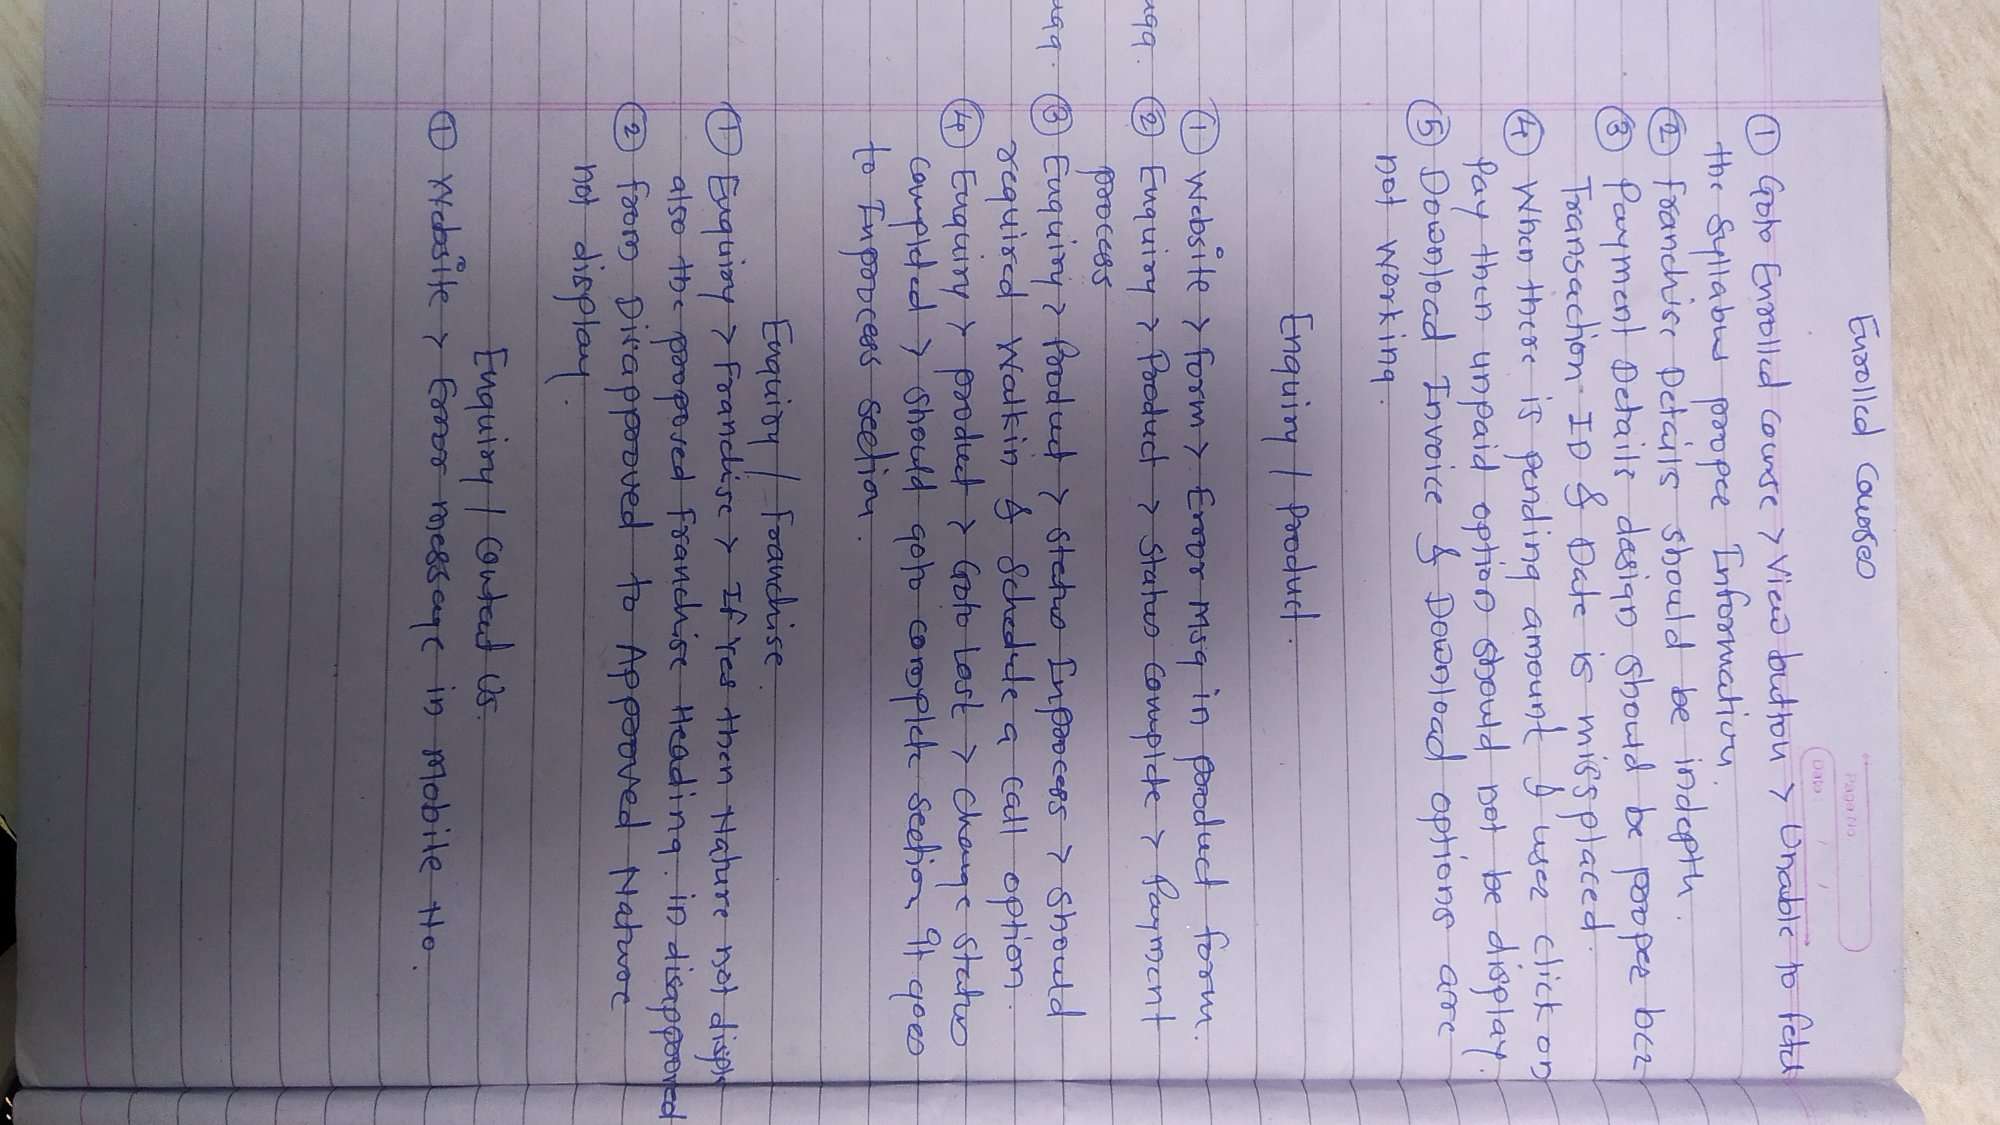 Page No
Date: / /
Enrolld Courses
① Goto Enrolld Course > View button > Unable to fetch
the Syllabus proper Information.
② Franchise Details should be indepth.
③ Payment Details design should be proper bcz
Transaction ID & Date is missplaced.
④ When there is pending amount & user click on
Pay then unpaid option should not be display.
⑤ Download Invoice & Download options are
not working.
Enquiry / Product.
① Website > form > Error msg in product form.
② Enquiry > Product > Status Complete > Payment
process
③ Enquiry > Product > Status Inprocess > should
required Walkin & Schedule a call option.
④ Enquiry > product > Goto Last > Change Status
Completed > should goto complete section It goes
to Inprocess section.
Enquiry / Franchise.
① Enquiry > Franchise > If Yes then Nature not displ
also the proposed Franchise Heading. in disapproved
② from Disapproved to Approved Nature
not display.
Enquiry / Contact Us.
① Website > Error message in Mobile No.